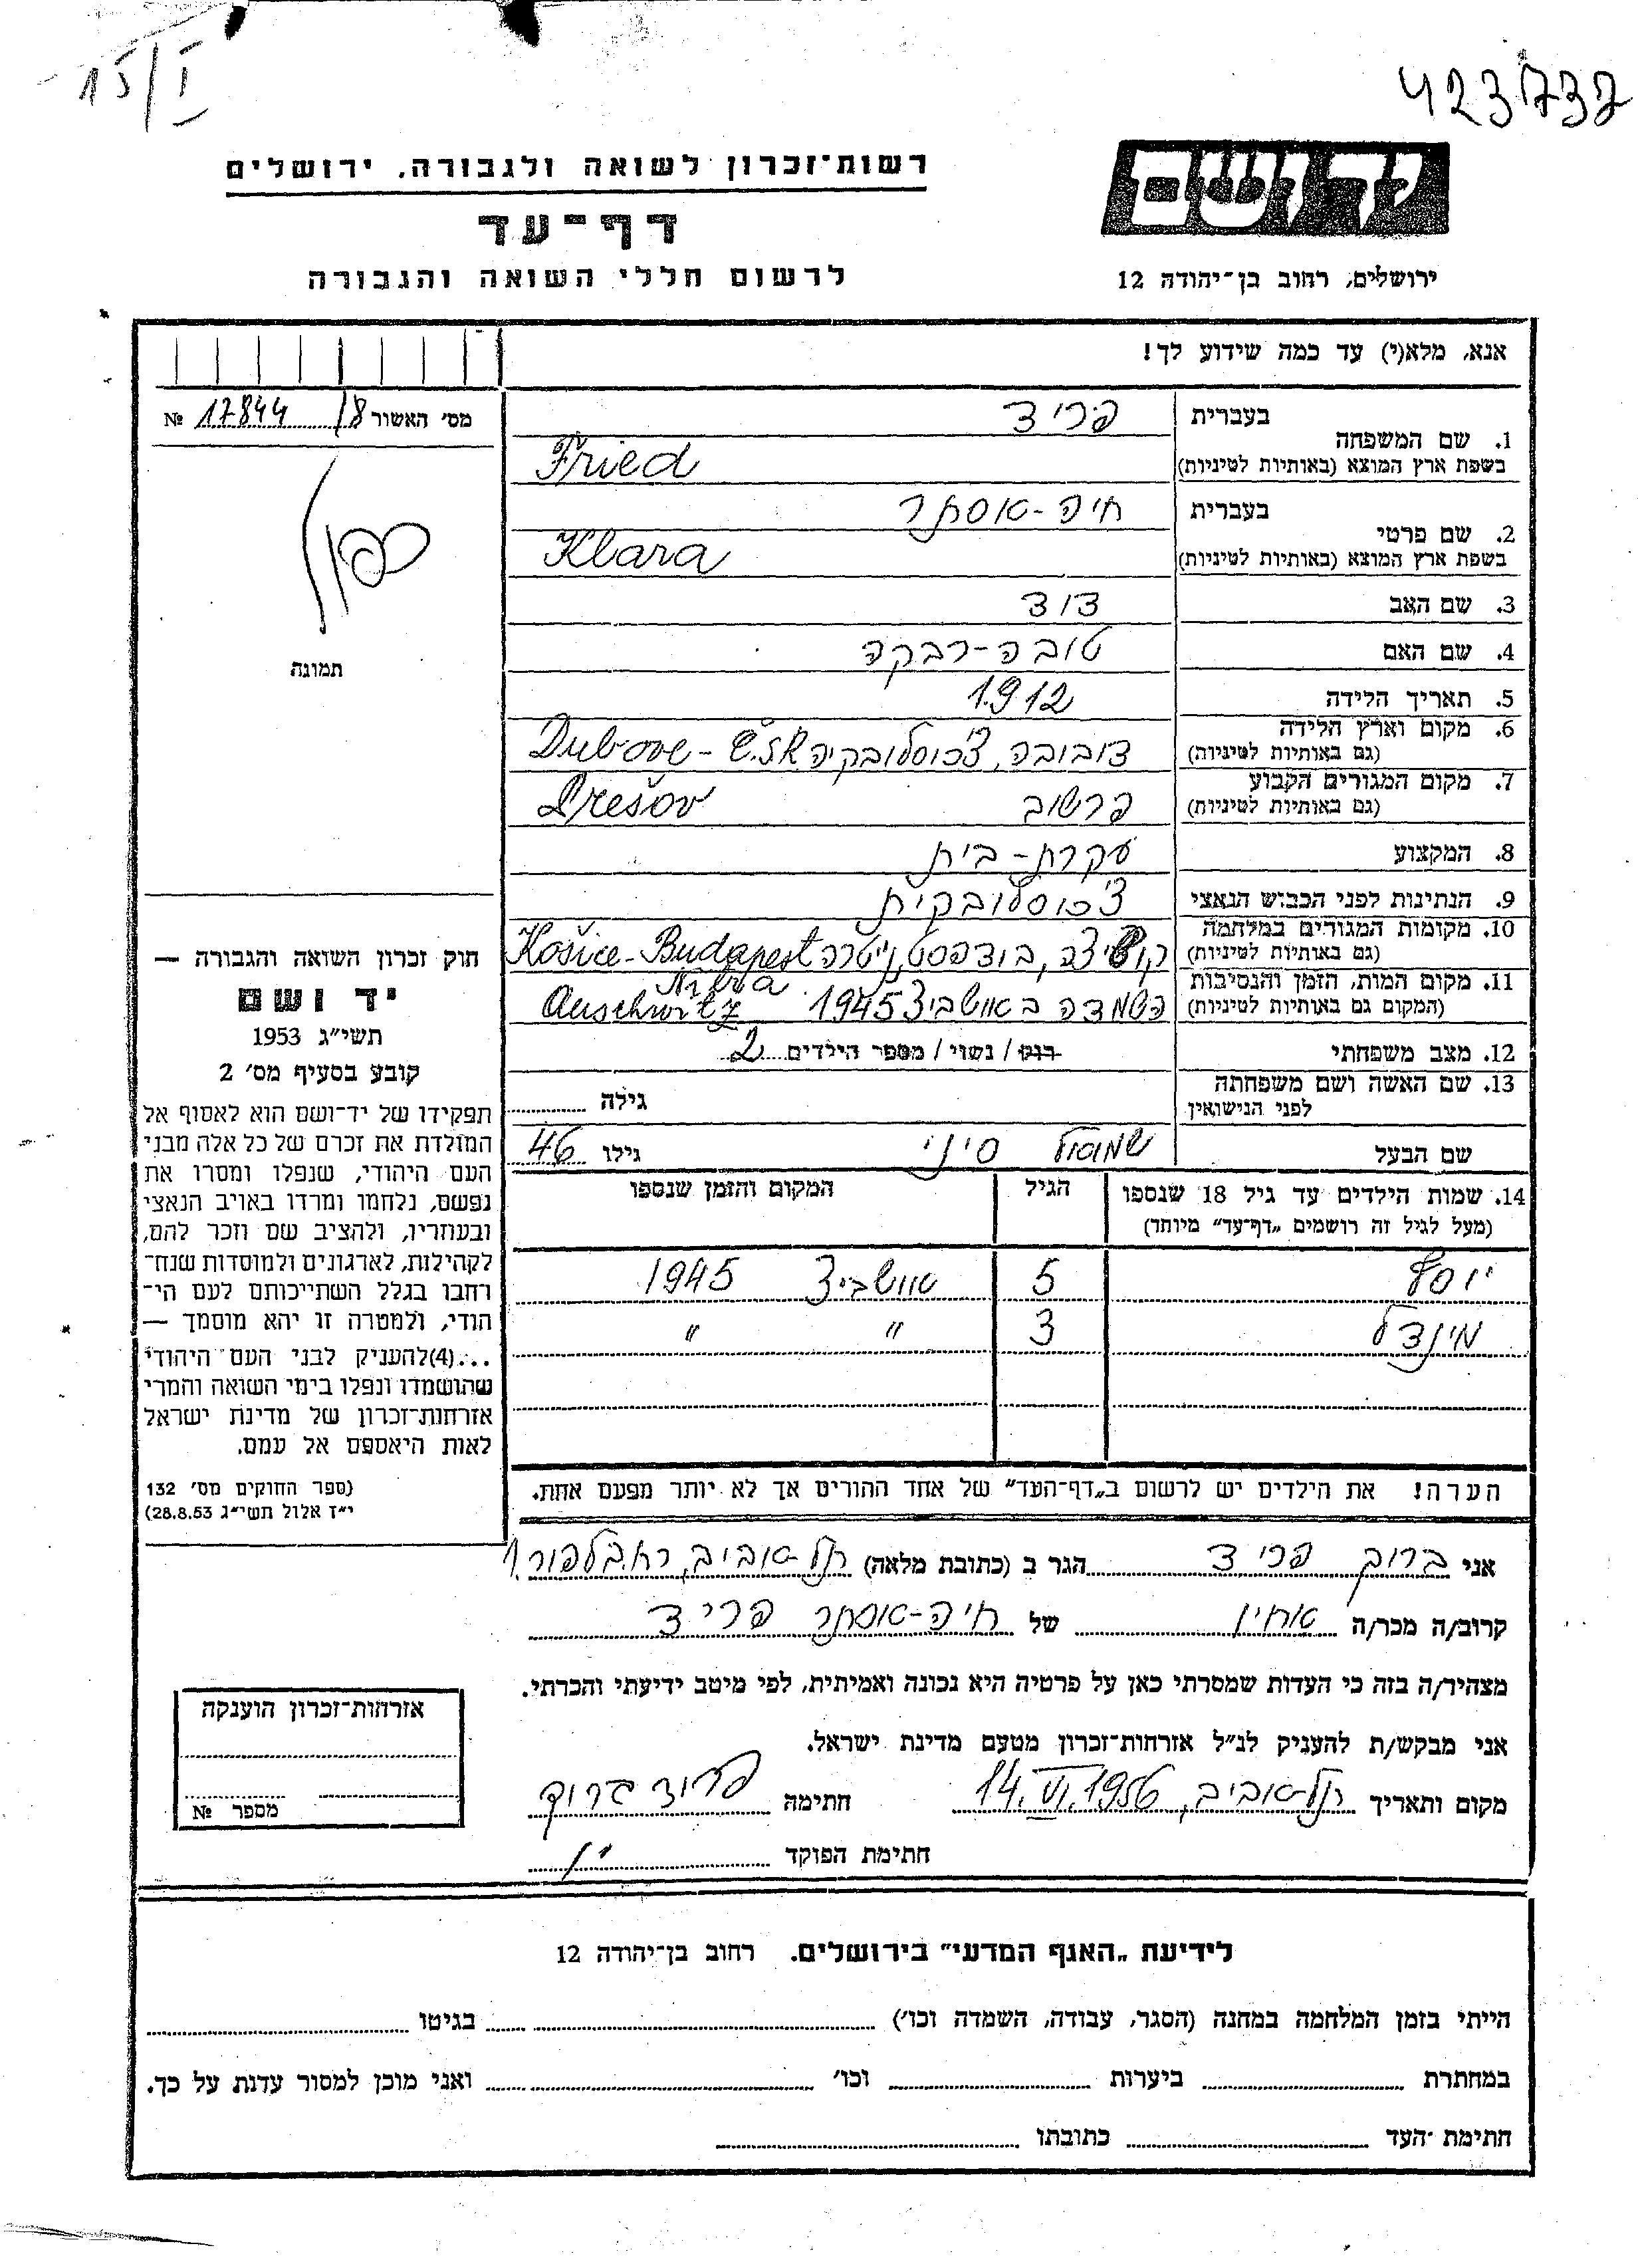 15/I
423/737
רשות־זכרון לשואה ולגבורה, ירושלים
דף־עד
לרשום חללי השואה והגבורה
יד ושם
ירושלים, רחוב בן־יהודה 12
אנא, מלא(י) עד כמה שידוע לך!
מס׳ האשור 18/ 17844 №
תמונה
1. שם המשפחה
בעברית פריד
בשפת ארץ המוצא (באותיות לטיניות) Fried
2. שם פרטי
בעברית חיה-אסתר
בשפת ארץ המוצא (באותיות לטיניות) Klara
3. שם האב דוד
4. שם האם טובה-רבקה
5. תאריך הלידה 1912
6. מקום וארץ הלידה
(גם באותיות לטיניות) דובובה, צ'כוסלובקיה Dubove - Č.S.R.
7. מקום המגורים הקבוע
(גם באותיות לטיניות) פרשוב Prešov
8. המקצוע עקרת-בית
9. הנתינות לפני הכבוש הנאצי צ'כוסלובקית
10. מקומות המגורים במלחמה
(גם באותיות לטיניות) קושיצה, בודפסט, ניטרה Košice - Budapest
Nitra
11. מקום המות, הזמן והנסיבות
(המקום גם באותיות לטיניות) השמדה באושביץ 1945 Auschwitz
12. מצב משפחתי רוק / נשוי / מספר הילדים 2
13. שם האשה ושם משפחתה
לפני הנישואין גילה
שם הבעל שמואל סיני גילו 46
14. שמות הילדים עד גיל 18 שנספו הגיל המקום והזמן שנספו
(מעל לגיל זה רושמים „דף־עד״ מיוחד)
יוסף 5 אושביץ 1945
מינדל 3 " "
הערה! את הילדים יש לרשום ב„דף־העד״ של אחד ההורים אך לא יותר מפעם אחת.
חוק זכרון השואה והגבורה —
יד ושם
תשי״ג 1953
קובע בסעיף מס׳ 2
תפקידו של יד־ושם הוא לאסוף אל
המולדת את זכרם של כל אלה מבני
העם היהודי, שנפלו ומסרו את
נפשם, נלחמו ומרדו באויב הנאצי
ובעוזריו, ולהציב שם וזכר להם,
לקהילות, לארגונים ולמוסדות שנח־
רחבו בגלל השתייכותם לעם הי־
הודי, ולמטרה זו יהא מוסמך —
...(4) להעניק לבני העם היהודי
שהושמדו ונפלו בימי השואה והמרי
אזרחות־זכרון של מדינת ישראל
לאות היאספם אל עמם.
(ספר החוקים מס׳ 132
י״ז אלול תשי״ג 28.8.53)
אני ברוך פריד הגר ב (כתובת מלאה) תל-אביב, רח. בלפור 1
קרוב/ה מכר/ה אחיו של חיה-אסתר פריד
מצהיר/ה בזה כי העדות שמסרתי כאן על פרטיה היא נכונה ואמיתית, לפי מיטב ידיעתי והכרתי.
אני מבקש/ת להעניק לנ״ל אזרחות־זכרון מטעם מדינת ישראל.
מקום ותאריך תל-אביב, 14.VI.1956 חתימה פריד ברוך
חתימת הפוקד
אזרחות־זכרון הוענקה
מספר №
לידיעת „האגף המדעי״ בירושלים. רחוב בן־יהודה 12
הייתי בזמן המלחמה במחנה (הסגר, עבודה, השמדה וכו׳) בגיטו
במחתרת ביערות וכו׳ ואני מוכן למסור עדות על כך.
חתימת העד כתובתו